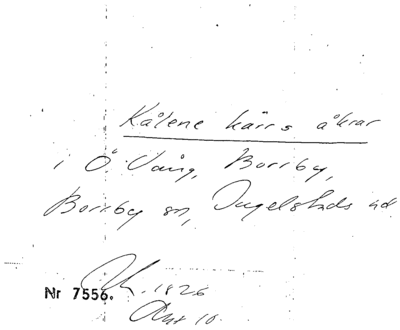 Kålene kärrs åkrar
i Ö. Vång, Borrby,
Borrby sn, Ingelstads hd
1826
Nr 7556.
Akt 10